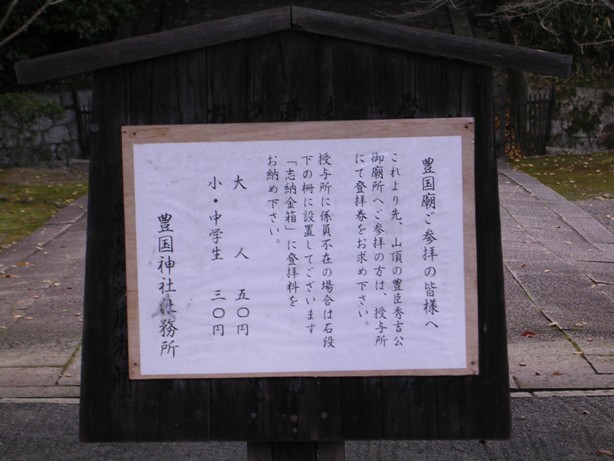 豊国廟ご参拝の皆様へ
これより先、山頂の豊臣秀吉公
御廟所へご参拝の方は、授与所
にて登拝券をお求め下さい。
授与所に係員不在の場合は石段
下の柵に設置してございます
「志納金箱」に登拝料を
お納め下さい。
大人 五〇円
小・中学生 三〇円
豊国神社社務所